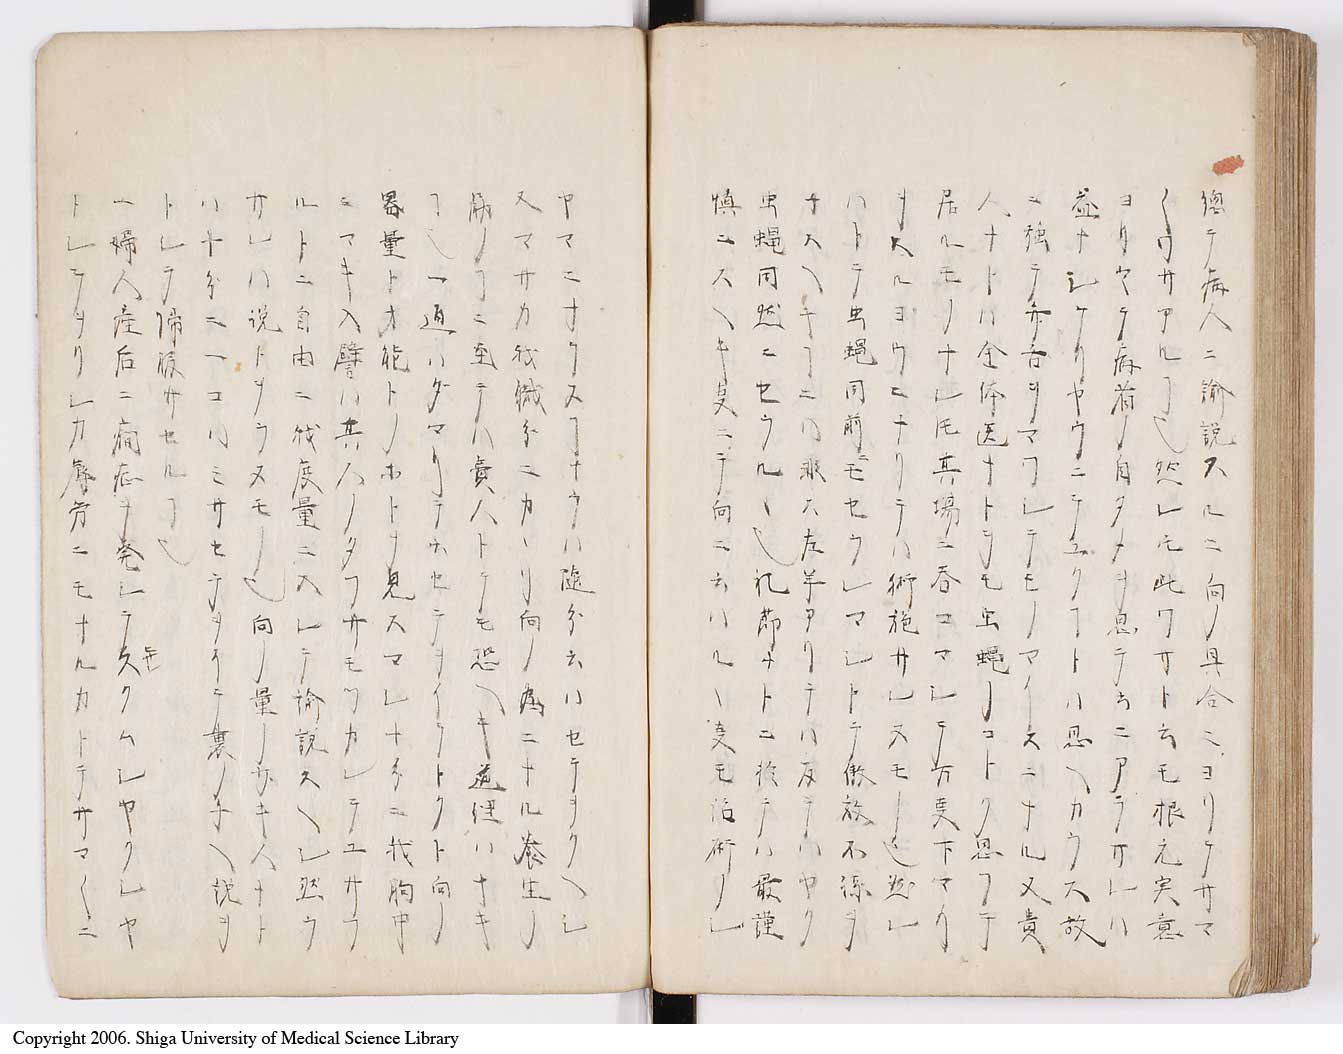 總テ病人ニ諭説スルニ向ノ具合ニヨリサマ
〱ワサアルヿ也然レ𪜈此ワサト云モ根元実意
ヨリヤテ病者ノ自タメヲ思テ云ニアラサレハ
益ナシケリヤウニテユクヿトハ思ヘカラス故
ニ強テ弁舌ヲマワレテモノマイスニナル又貴
人ナトハ全体医ナトヲモ虫蝿ノコトク思フテ
居ルモノナレ𪜈其場ニ呑コマレテ万事下マリ
ヲスルヨウニナリテハ術施サレヌモノ也然レ
ハトテ虫蝿同前ニモセウレマレトテ傲放不遜ヲ
ナスヘキヿニハ非ス左羊アリテハ反テハヤク
虫蝿同然ニセラルヽ也礼節ナトニ於テハ最謹
慎ニスヘキ事ニテ向ニ云ハルヽ事モ治術ノレ
ヤマニナラスヿナラハ随分云ハセテヲクヘシ
又マサカ我職分ニカヽリ向ノ為ニナル養生ノ
筋ノヿニ至テハ貴人トテモ恐ヘキ道理ハナキ
ヿ也一通ハダマリテ云セテヲイテトクト向ノ
器量ト才能トノホトヲ見スマレ十分ニ我胸中
ニマキ入譬ハ其人ノタフサモツカレテユサフ
ルトニ自由ニ我度量ニ入レテ諭説スヘシ然ラ
サレハ説トヲラヌモノ也向ノ量ノ廿キ人ナト
ハ十分ニ一コハミサセテヲイテ裏ノナヘ説ヲ
トレテ歸服サセルヿ也
一婦人産后ニ癇症ヲ発レテ久クムレヤクレヤ
トレテヲリレカ辱労ニモナルカトテサマ〱ニ